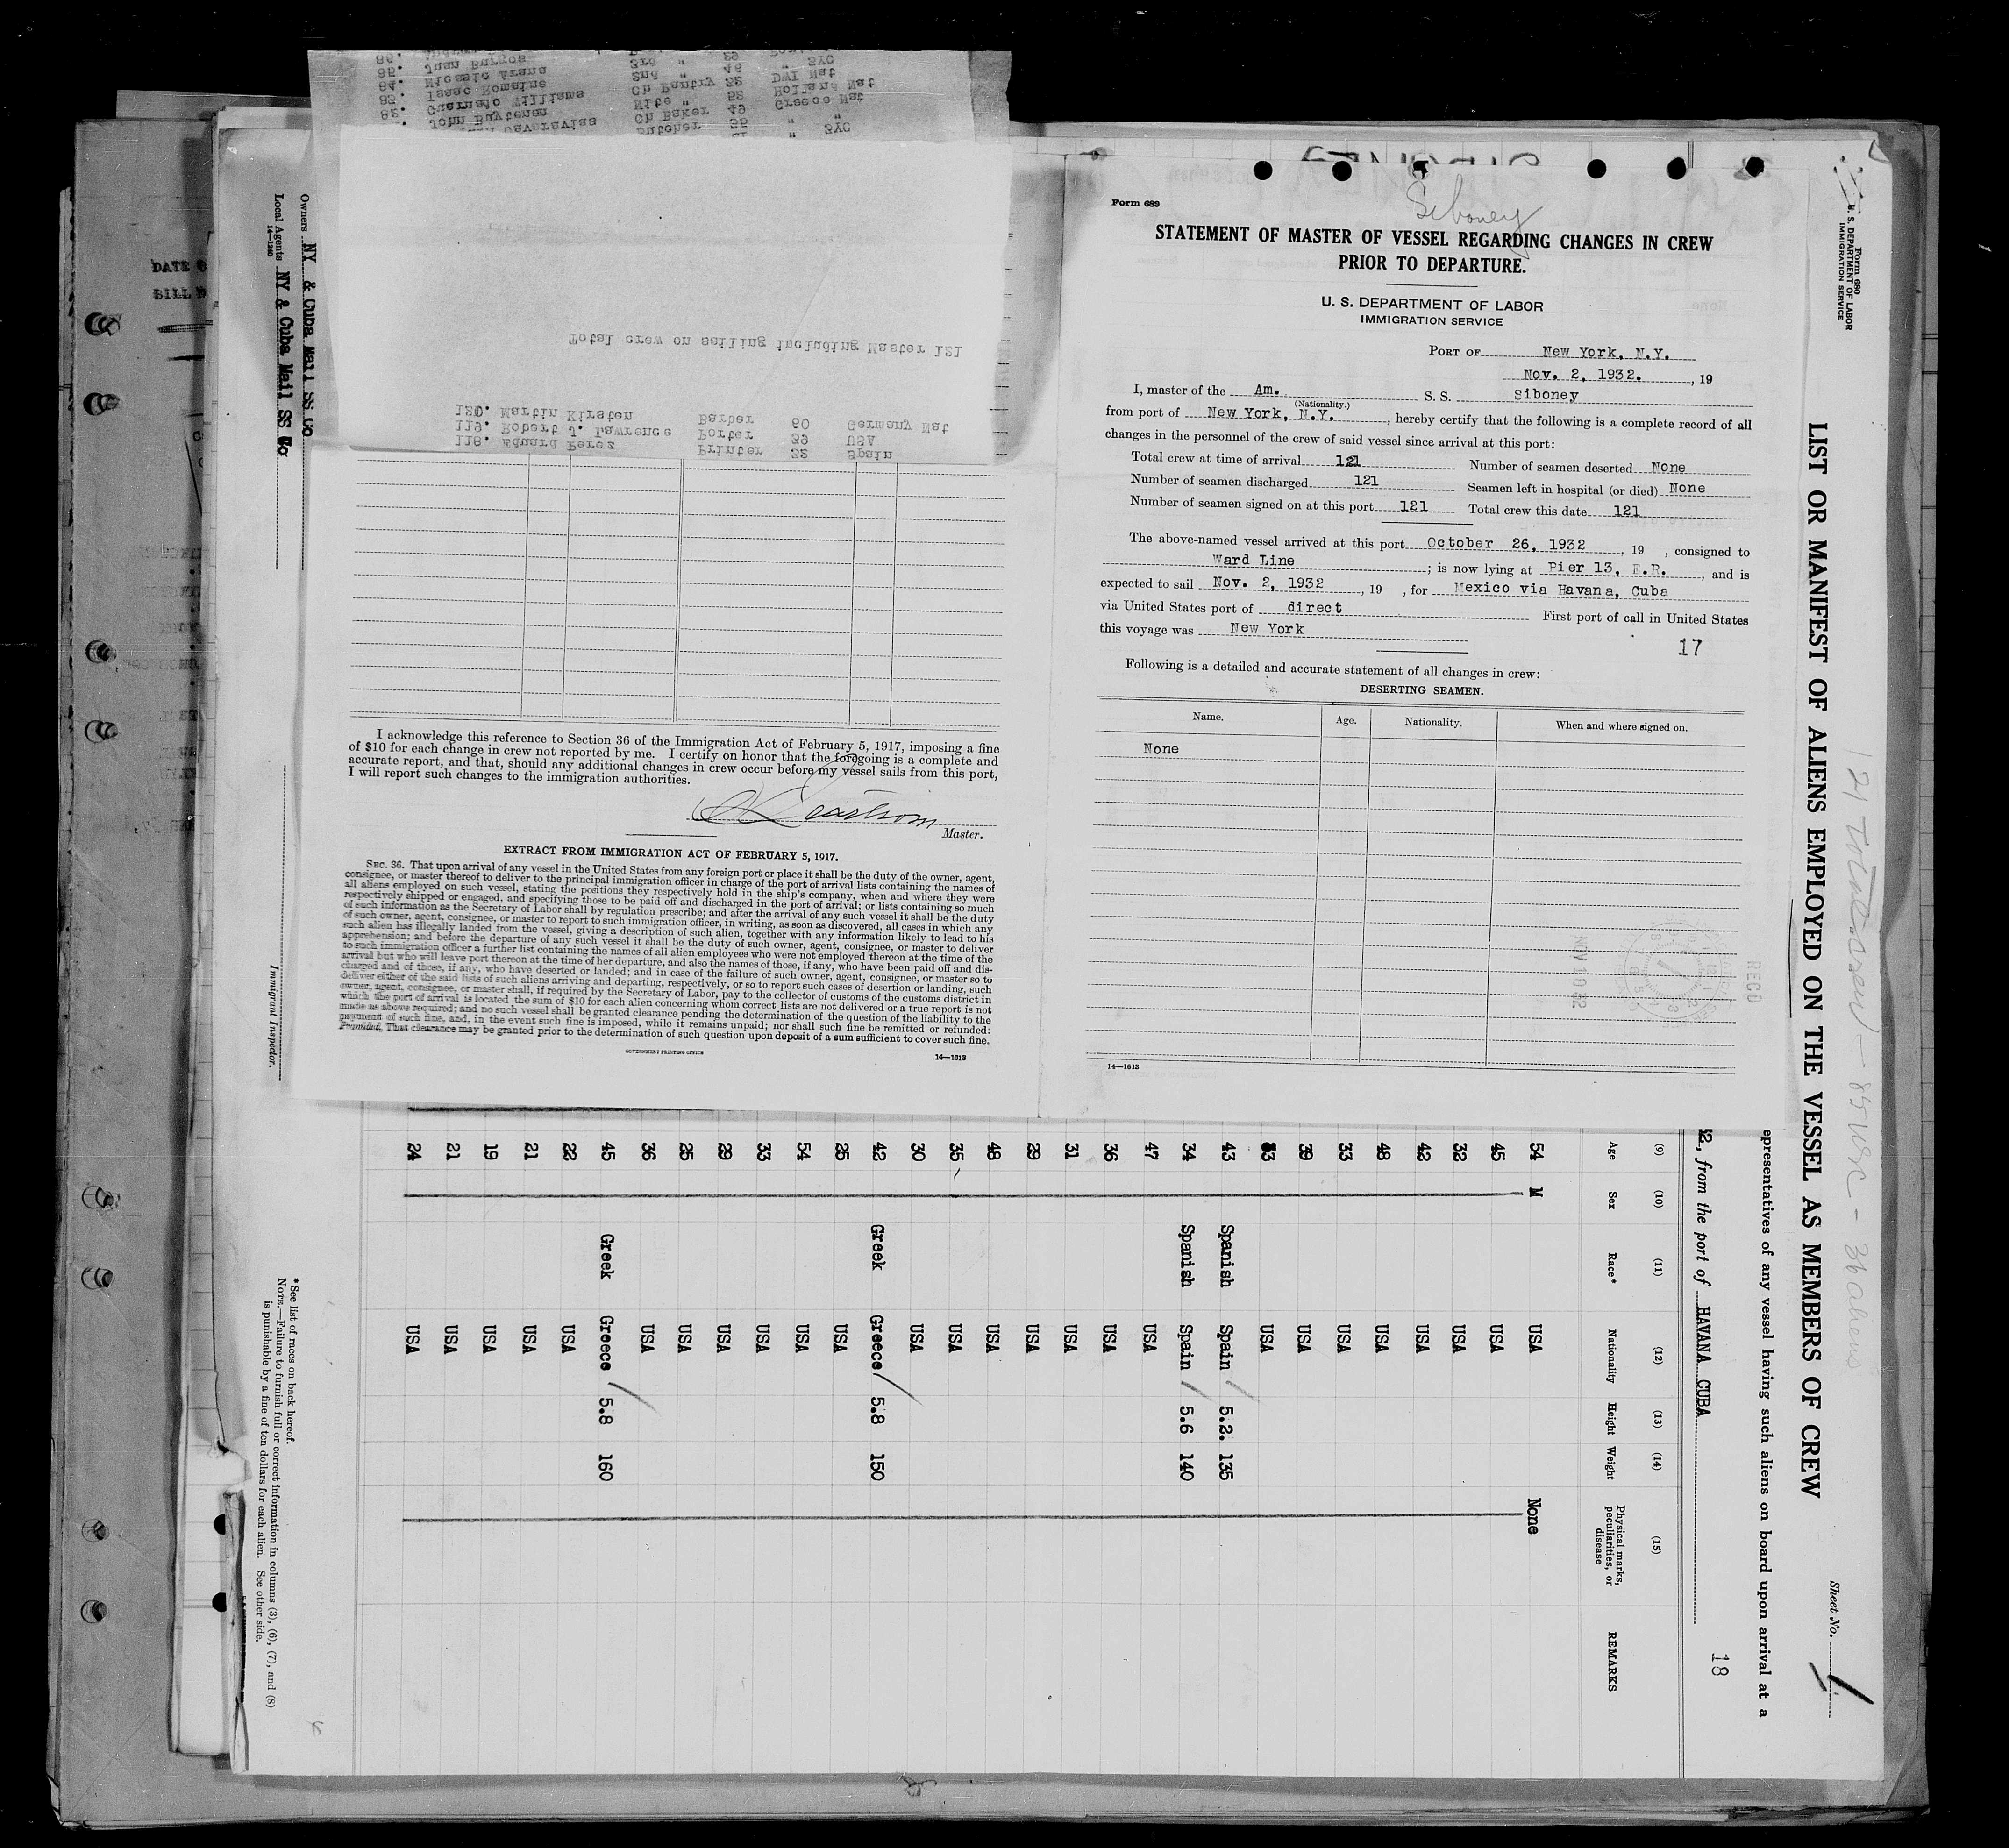 Form 689
Siboney
STATEMENT OF MASTER OF VESSEL REGARDING CHANGES IN CREW
PRIOR TO DEPARTURE.
U. S. DEPARTMENT OF LABOR
IMMIGRATION SERVICE
PORT OF New York, N.Y.
Nov. 2, 1932. , 19
I, master of the Am. S. S. Siboney
(Nationality.)
from port of New York, N.Y. , hereby certify that the following is a complete record of all
changes in the personnel of the crew of said vessel since arrival at this port:
Total crew at time of arrival 121 Number of seamen deserted None
Number of seamen discharged 121 Seamen left in hospital (or died) None
Number of seamen signed on at this port 121 Total crew this date 121
The above-named vessel arrived at this port October 26, 1932 , 19 , consigned to
Ward Line ; is now lying at Pier 13, E.R. , and is
expected to sail Nov. 2, 1932 , 19 , for Mexico via Havana, Cuba
via United States port of direct First port of call in United States
this voyage was New York
17
Following is a detailed and accurate statement of all changes in crew:
DESERTING SEAMEN.
Name. Age. Nationality. When and where signed on.
None
RECD
NOV 10 32
14—1613
86.
85. Juan Burgos 3rd " 29 " SYC
84. Nicasio Arana 2nd " 46 DWI Nat
83. Isaac Romaine Ch Pantry 32 Holland Nat
82. Guernaio Williams Nite " 52 Greece Nat
John Buytenen Ch Baker 49 " "
Butcher 35 " SYC
Total crew on sailing including Master 121
120. Martin Kirsten Barber 60 Germany Nat
119. Robert J. Lawrence Porter 39 USA
118. Eduard Perez Printer 32 Spain
I acknowledge this reference to Section 36 of the Immigration Act of February 5, 1917, imposing a fine
of $10 for each change in crew not reported by me. I certify on honor that the foregoing is a complete and
accurate report, and that, should any additional changes in crew occur before my vessel sails from this port,
I will report such changes to the immigration authorities.
Master.
EXTRACT FROM IMMIGRATION ACT OF FEBRUARY 5, 1917.
SEC. 36. That upon arrival of any vessel in the United States from any foreign port or place it shall be the duty of the owner, agent,
consignee, or master thereof to deliver to the principal immigration officer in charge of the port of arrival lists containing the names of
all aliens employed on such vessel, stating the positions they respectively hold in the ship's company, when and where they were
respectively shipped or engaged, and specifying those to be paid off and discharged in the port of arrival; or lists containing so much
of such information as the Secretary of Labor shall by regulation prescribe; and after the arrival of any such vessel it shall be the duty
of such owner, agent, consignee, or master to report to such immigration officer, in writing, as soon as discovered, all cases in which any
such alien has illegally landed from the vessel, giving a description of such alien, together with any information likely to lead to his
apprehension; and before the departure of any such vessel it shall be the duty of such owner, agent, consignee, or master to deliver
to such immigration officer a further list containing the names of all alien employees who were not employed thereon at the time of the
arrival but who will leave port thereon at the time of her departure, and also the names of those, if any, who have been paid off and dis-
charged and of those, if any, who have deserted or landed; and in case of the failure of such owner, agent, consignee, or master so to
deliver either of the said lists of such aliens arriving and departing, respectively, or so to report such cases of desertion or landing, such
owner, agent, consignee, or master shall, if required by the Secretary of Labor, pay to the collector of customs of the customs district in
which the port of arrival is located the sum of $10 for each alien concerning whom correct lists are not delivered or a true report is not
made as above required; and no such vessel shall be granted clearance pending the determination of the question of the liability to the
payment of such fine, and, in the event such fine is imposed, while it remains unpaid; nor shall such fine be remitted or refunded:
Provided, That clearance may be granted prior to the determination of such question upon deposit of a sum sufficient to cover such fine.
GOVERNMENT PRINTING OFFICE
14—1613
Form 680
U. S. DEPARTMENT OF LABOR
IMMIGRATION SERVICE
LIST OR MANIFEST OF ALIENS EMPLOYED ON THE VESSEL AS MEMBERS OF CREW
Sheet No. 1
epresentatives of any vessel having such aliens on board upon arrival at a
, from the port of HAVANA CUBA
18
(9) (10) (11) (12) (13) (14) (15)
Age Sex Race* Nationality Height Weight Physical marks, peculiarities, or disease REMARKS
54 M USA None
45 USA
32 USA
42 USA
48 USA
33 USA
39 USA
USA
43 Spanish Spain 5.2. 135
34 Spanish Spain 5.6 140
47 USA
36 USA
31 USA
29 USA
48 USA
35 USA
30 USA
42 Greek Greece 5.8 150
25 USA
54 USA
33 USA
29 USA
25 USA
36 USA
45 Greek Greece 5.8 160
22 USA
21 USA
19 USA
21 USA
24 USA
Owners NY & Cuba Mail SS Co
Local Agents NY & Cuba Mail SS Co
14—1240
Immigrant Inspector.
* See list of races on back hereof.
NOTE.—Failure to furnish full or correct information in columns (3), (6), (7), and (8)
is punishable by a fine of ten dollars for each alien. See other side.
DATE